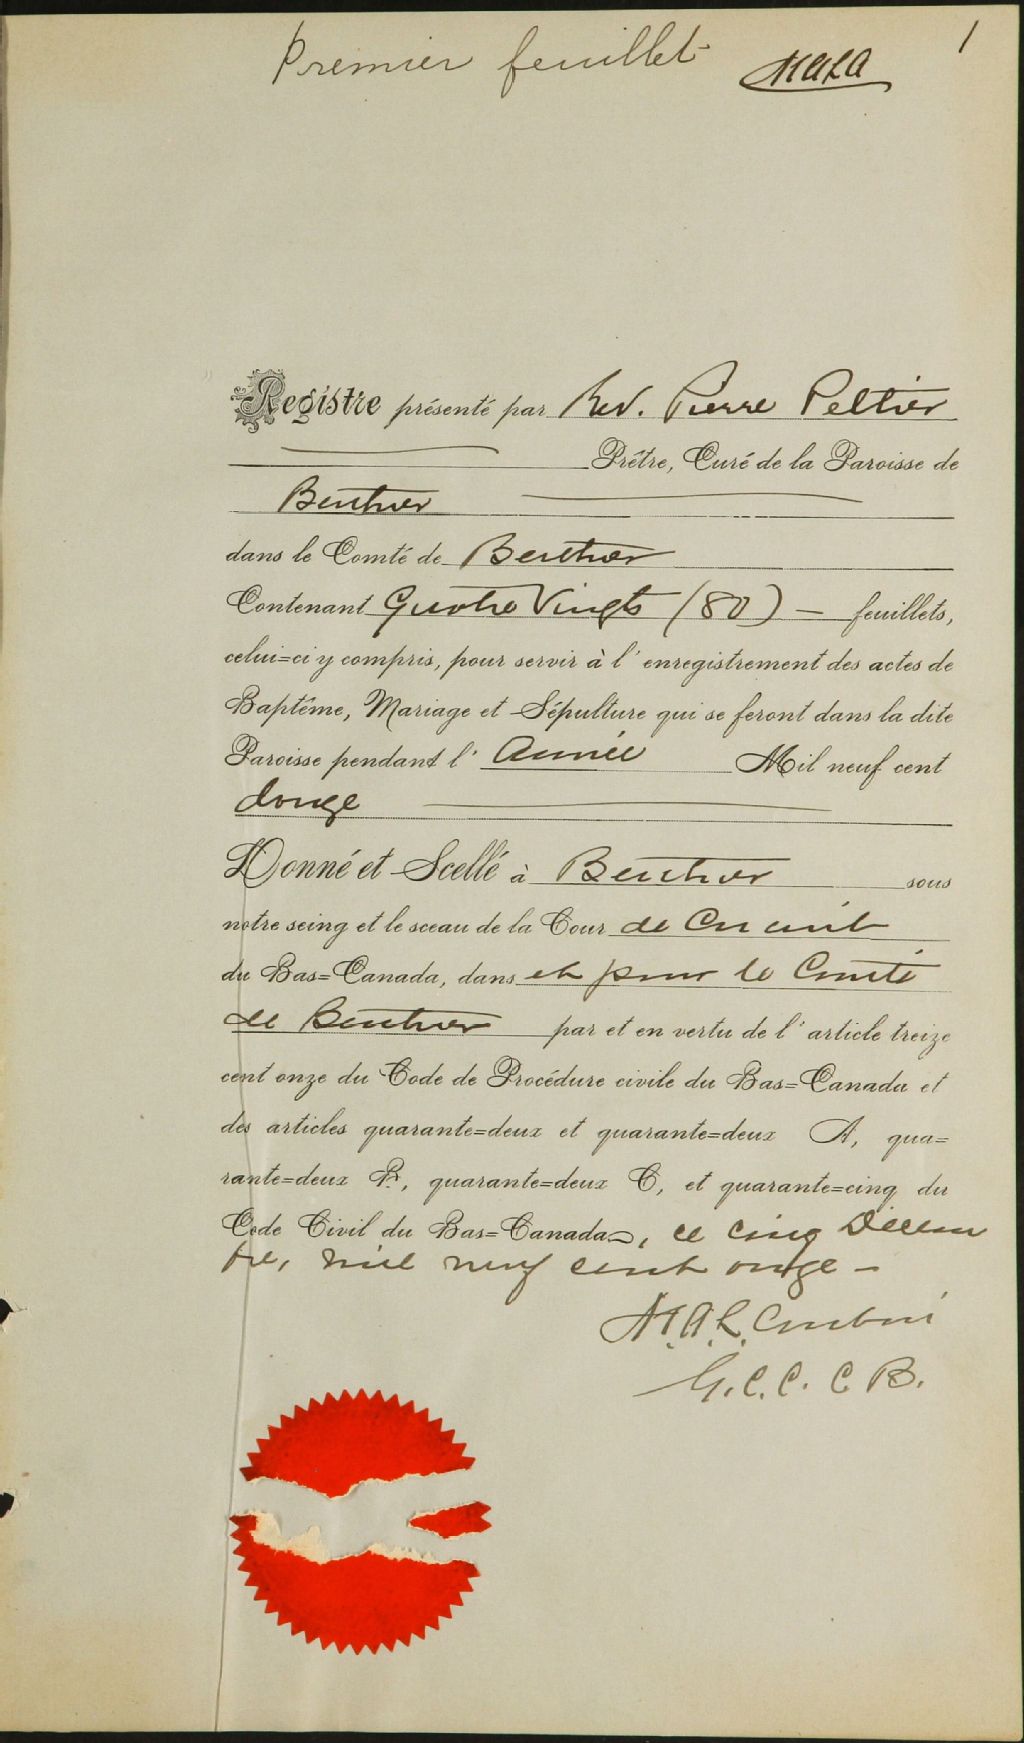 1
Premier feuillet
Registre présenté par Rev. Pierre Peltier
Prêtre, Curé de la Paroisse de
Berthier
dans le Comté de Berthier
Contenant Quatre Vingts (80) — feuillets,
celui=ci y compris, pour servir à l' enregistrement des actes de
Baptême, Mariage et Sépulture qui se feront dans la dite
Paroisse pendant l' Année Mil neuf cent
douze
Donné et Scellé à Berthier sous
notre seing et le sceau de la Cour de Circuit
du Bas=Canada, dans et pour le Comté
de Berthier par et en vertu de l' article treize
cent onze du Code de Procédure civile du Bas=Canada et
des articles quarante=deux et quarante=deux A, qua=
rante=deux B, quarante=deux C, et quarante=cinq du
Code Civil du Bas=Canada, ce cinq Décem
bre, mil neuf cent onze —
G.C.C. C.B.